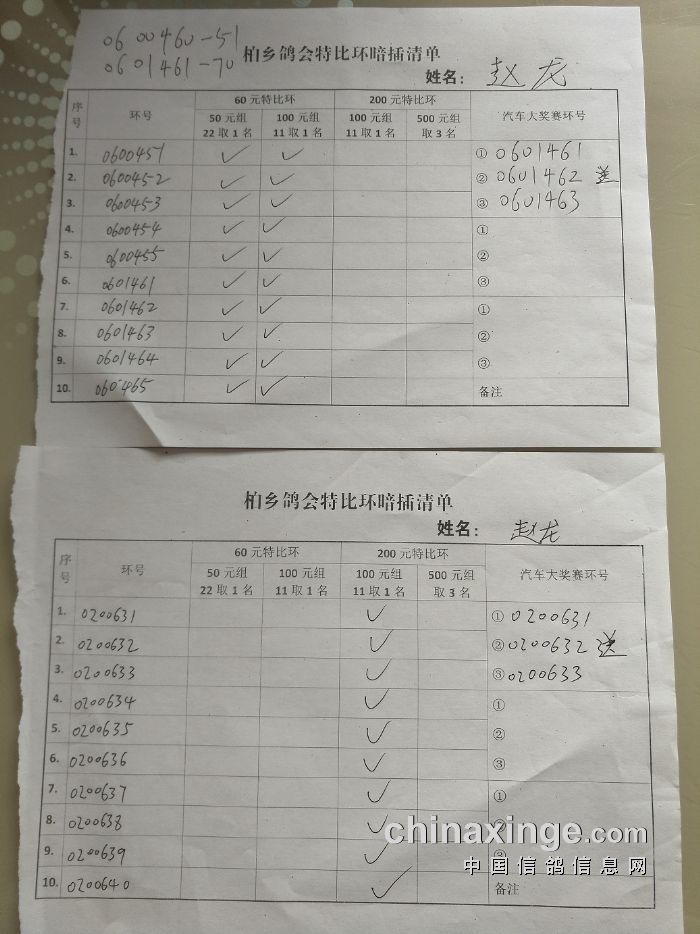 0600460-51
0601461-70
柏乡鸽会特比环暗插清单
姓名: 赵龙
序号 环号 60元特比环 200元特比环 汽车大奖赛环号
50元组 22取1名 100元组 11取1名 100元组 11取1名 500元组 取3名
1. 0600451 ✓ ✓ ① 0601461
2. 0600452 ✓ ✓ ② 0601462 送
3. 0600453 ✓ ✓ ③ 0601463
4. 0600454 ✓ ✓ ①
5. 0600455 ✓ ✓ ②
6. 0601461 ✓ ✓ ③
7. 0601462 ✓ ✓ ①
8. 0601463 ✓ ✓ ②
9. 0601464 ✓ ✓ ③
10. 060465 ✓ ✓ 备注
柏乡鸽会特比环暗插清单
姓名: 赵龙
序号 环号 60元特比环 200元特比环 汽车大奖赛环号
50元组 22取1名 100元组 11取1名 100元组 11取1名 500元组 取3名
1. 0200631 ✓ ① 0200631
2. 0200632 ✓ ② 0200632 送
3. 0200633 ✓ ③ 0200633
4. 0200634 ✓ ①
5. 0200635 ✓ ②
6. 0200636 ✓ ③
7. 0200637 ✓ ①
8. 0200638 ✓ ②
9. 0200639 ✓ ③
10. 0200640 ✓ 备注
chinaxinge.com
中国信鸽信息网